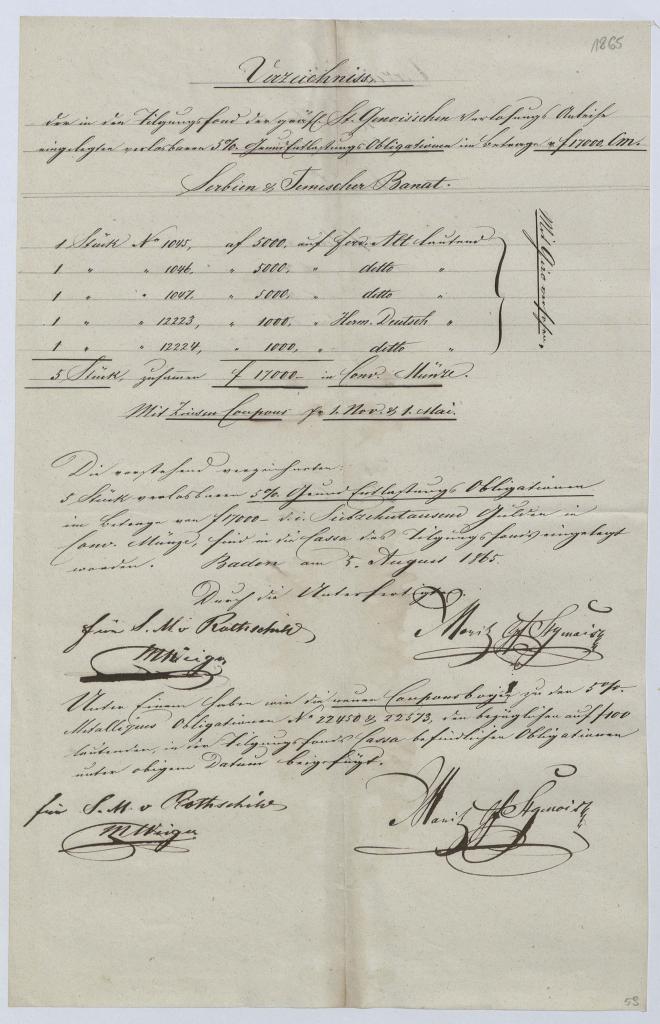 1865
Verzeichniss
der in den Tilgungsfond der gräfl. St. Genoisschen Verlosungs Anleihe
eingelegten verlosbaren 5% Grund Entlastungs Obligationen im Betrage v f 17000 Cm.
Serbien & Temescher Banat.
1 Stück No 1045, af 5000, auf Ferd. Alt lautend
1 " " 1046, " 5000, " detto "
1 " " 1047, " 5000, " detto "
1 " " 12223, " 1000, " Herm. Deutsch "
1 " " 12224, " 1000, " detto "
Mit Giro versehen.
5 Stück, zusammen f 17000 – in Conv. Münze.
Mit Zinsen Coupons pr 1. Nov. & 1. Mai.
Die vorstehend verzeichneten:
5 Stück verlosbaren 5% Grund Entlastungs Obligationen
im Betrage von f 17000 – d. i. Siebzehntausend Gulden in
Conv. Münze, sind in die Cassa des Tilgungsfonds eingelegt
worden. Baden am 5. August 1865.
Durch die Unterfertigten.
für S. M. v Rothschild
Moriz Gf St Genois
MWeiger
Unter Einem haben wir die neuen Couponsbogen zu den 5%
Metalliques Obligationen No 22450 & 22573, den bezüglichen auf f 100
lautenden, in der Tilgungsfonds Cassa befindlichen Obligationen
unter obigem Datum beigefügt.
für S. M. v Rothschild
Moriz Gf St Genois
MWeiger